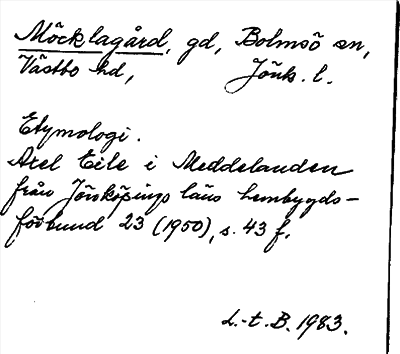 Möcklagård, gd, Bolmsö sn,
Västbo hd, Jönk. l.
Etymologi.
Axel Eile i Meddelanden
från Jönköpings läns hembygds-
förbund 23 (1950), s. 43 f.
L.-t. B. 1983.